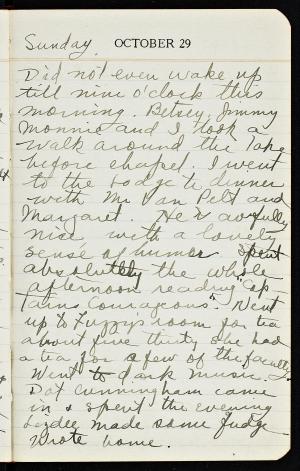 Sunday. OCTOBER 29
Did not even wake up
till nine o'clock this
morning. Betsey, Jimmy
Monnie and I took a
walk around the lake
before chapel. I went
to the Lodge to dinner
with Mr Van Pelt and
Margaret. He is awfully
nice with a lovely
sense of humor. Spent
absolutely the whole
afternoon reading "Cap
tains Courageous". Went
up to Fuzzy's room for tea
about five thirty she had
a tea for a few of the faculty.
Went to dark music.
Dot Cunningham came
in & spent the evening
made some fudge
Wrote home.